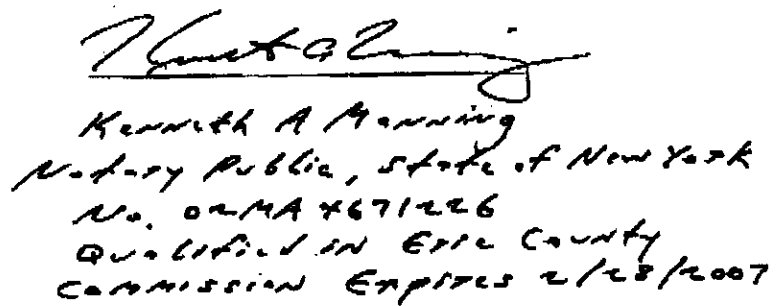 Kenneth A Manning
Notary Public, State of New York
No. 02MA4671226
Qualified in Erie County
Commission Expires 2/28/2007